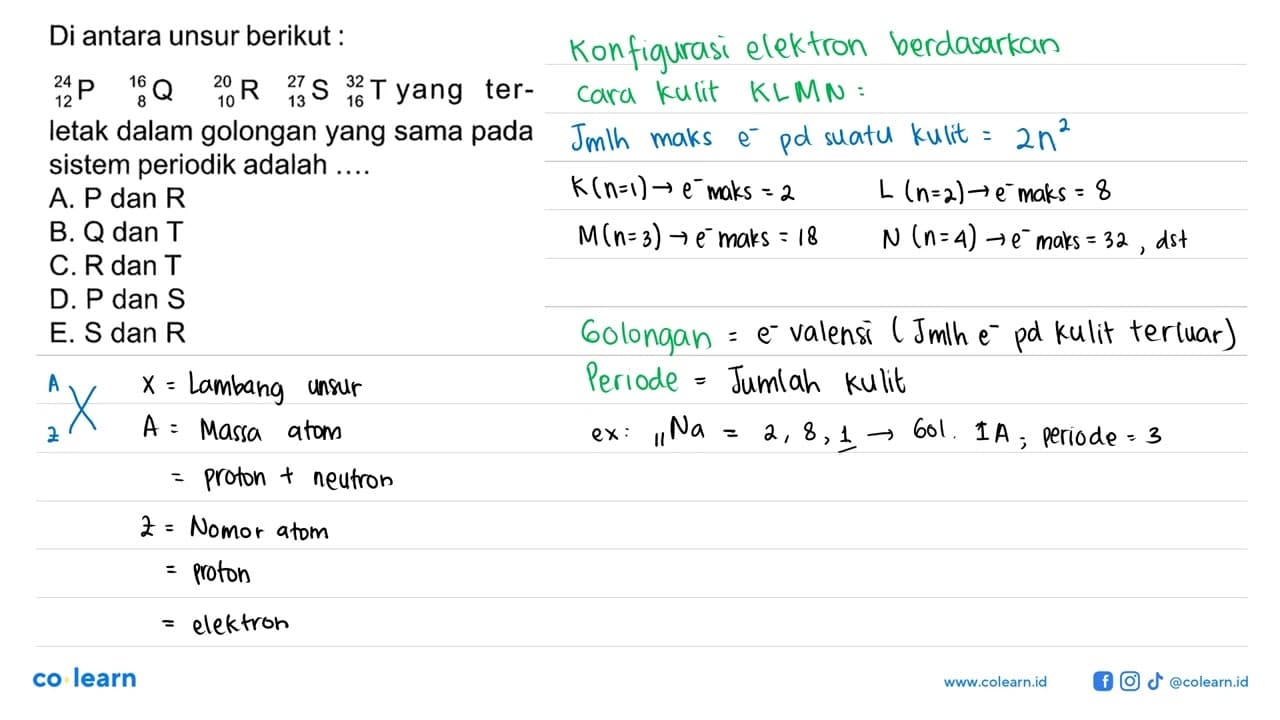 Di antara unsur berikut :
²⁴₁₂P ¹⁶₈Q ²⁰₁₀R ²⁷₁₃S ³²₁₆T yang ter-
letak dalam golongan yang sama pada
sistem periodik adalah ....
A. P dan R
B. Q dan T
C. R dan T
D. P dan S
E. S dan R
A
Z X
X = Lambang unsur
A = Massa atom
= proton + neutron
Z = Nomor atom
= proton
= elektron
Konfigurasi elektron berdasarkan
cara kulit KLMN :
Jmlh maks e⁻ pd suatu kulit = 2n²
K(n=1) → e⁻ maks = 2 L (n=2) → e⁻ maks = 8
M(n=3) → e⁻ maks = 18 N (n=4) → e⁻ maks = 32 , dst
Golongan = e⁻ valensi (Jmlh e⁻ pd kulit terluar)
Periode = Jumlah kulit
ex: ₁₁Na = 2, 8, 1 → Gol. IA ; periode = 3
co learn
www.colearn.id
@colearn.id